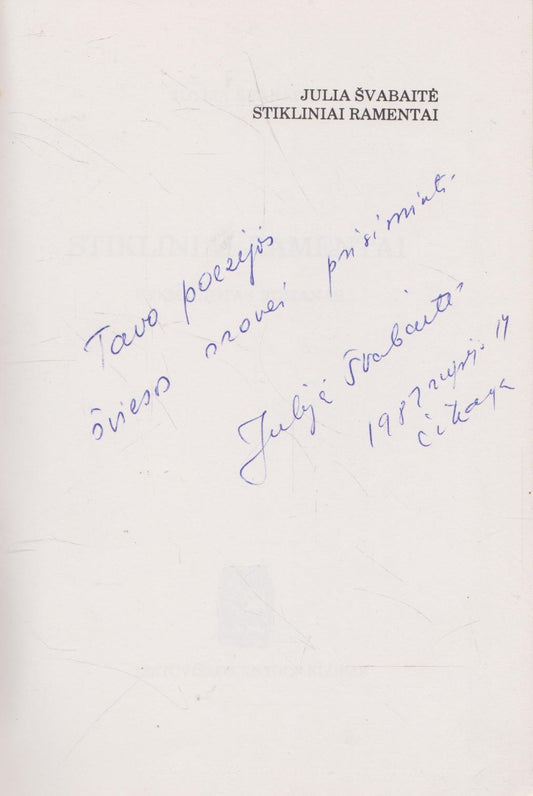 JULIA ŠVABAITĖ
STIKLINIAI RAMENTAI
Tavo poezijos
šviesos srovei prisiminti.
Julija Švabaitė
1987 rugsėjo 14
Čikaga